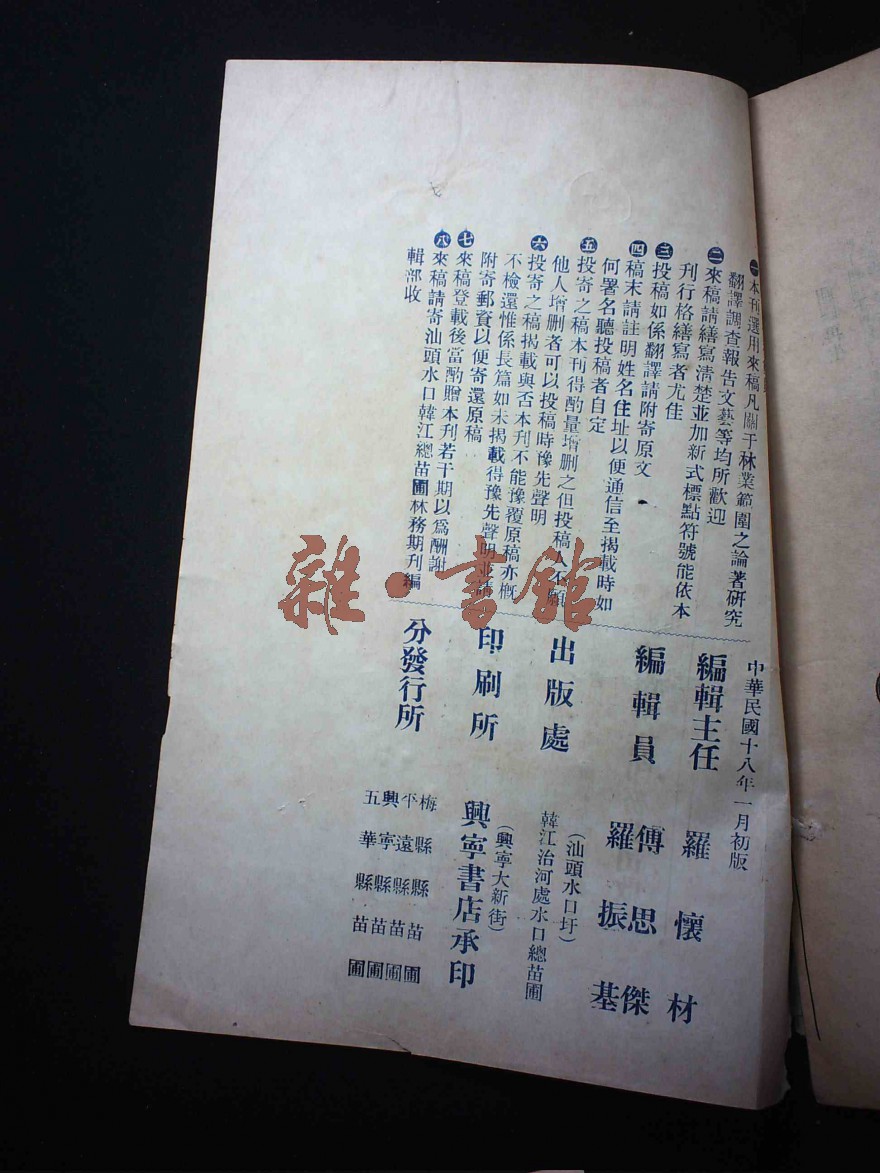 ㊀本刊選用來稿凡關于林業範圍之論著研究
翻譯調查報告文藝等均所歡迎
㊁來稿請繕寫清楚並加新式標點符號能依本
刊行格繕寫者尤佳
㊂投稿如係翻譯請附寄原文
㊃稿末請註明姓名住址以便通信至揭載時如
何署名聽投稿者自定
㊄投寄之稿本刊得酌量增删之但投稿人不願
他人增删者可以投稿時豫先聲明
㊅投寄之稿揭載與否本刊不能豫覆原稿亦槪
不檢還惟係長篇如未揭載得豫先聲明並請
附寄郵資以便寄還原稿
㊆來稿登載後當酌贈本刊若干期以爲酬謝
㊇來稿請寄汕頭水口韓江總苗圃林務期刊編
輯部收
中華民國十八年一月初版
編輯主任 羅懷材
編輯員 傅思傑
羅振基
出版處 (汕頭水口圩)
韓江治河處水口總苗圃
印刷所 (興寧大新街)
興寧書店承印
分發行所 梅縣苗圃
平遠縣苗圃
興寧縣苗圃
五華縣苗圃
雜·書館